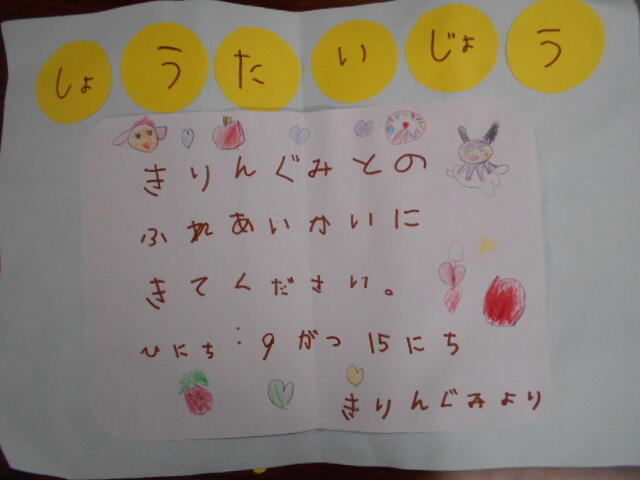 しょうたいじょう
きりんぐみとの
ふれあいかいに
きてください。
ひにち：9がつ15にち
きりんぐみより